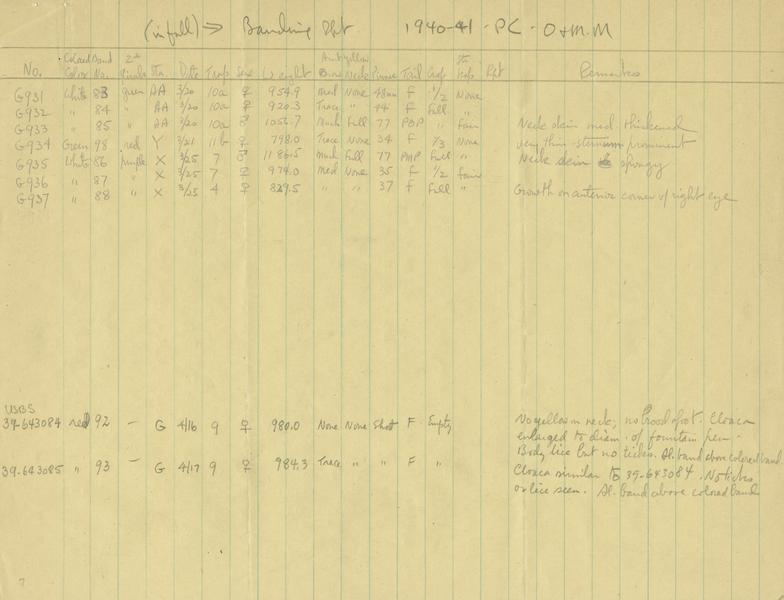 (in full) → Banding Rpt 1940-41 · PC · O+M.M
No. Colored Band Color No. 2nd Sta. Date Trap Sex Weight Amt yellow Brow Neck Pinnae Tail Crop Rpt Remarks
G931 White 83 green AA 3/20 10a ♀ 954.9 Med None 48mm F 1/2 None
G932 " 84 " AA 3/20 10a ♀ 920.3 Trace " 44 F Full "
G933 " 85 " AA 3/20 10a ♂ Much Full 77 " Fair Neck skin med. thickened
G934 Green 98 red Y 3/21 11b ♀ 798.0 Trace None 34 F 1/3 None very thin - sternum prominent
G935 White 86 purple X 3/25 7 ♂ 1186.5 Much Full 77 Full " Neck skin spongy
G936 " 87 " X 3/25 7 ♀ 974.0 med None 35 F 1/2 Fair
G937 " 88 " X 3/25 4 ♀ 829.5 " " 37 F Full " Growth on anterior corner of right eye
USBS
39-643084 red 92 — G 4/16 9 ♀ 980.0 None None Short F Empty No yellow on neck; no brood spot. Cloaca
enlarged to diam. of fountain pen.
Body lice but no ticks. Al. band above colored band
39-643085 " 93 — G 4/17 9 ♀ 984.3 Trace " " F " Cloaca similar to 39-643084. No ticks
or lice seen. Al. band above colored band
7